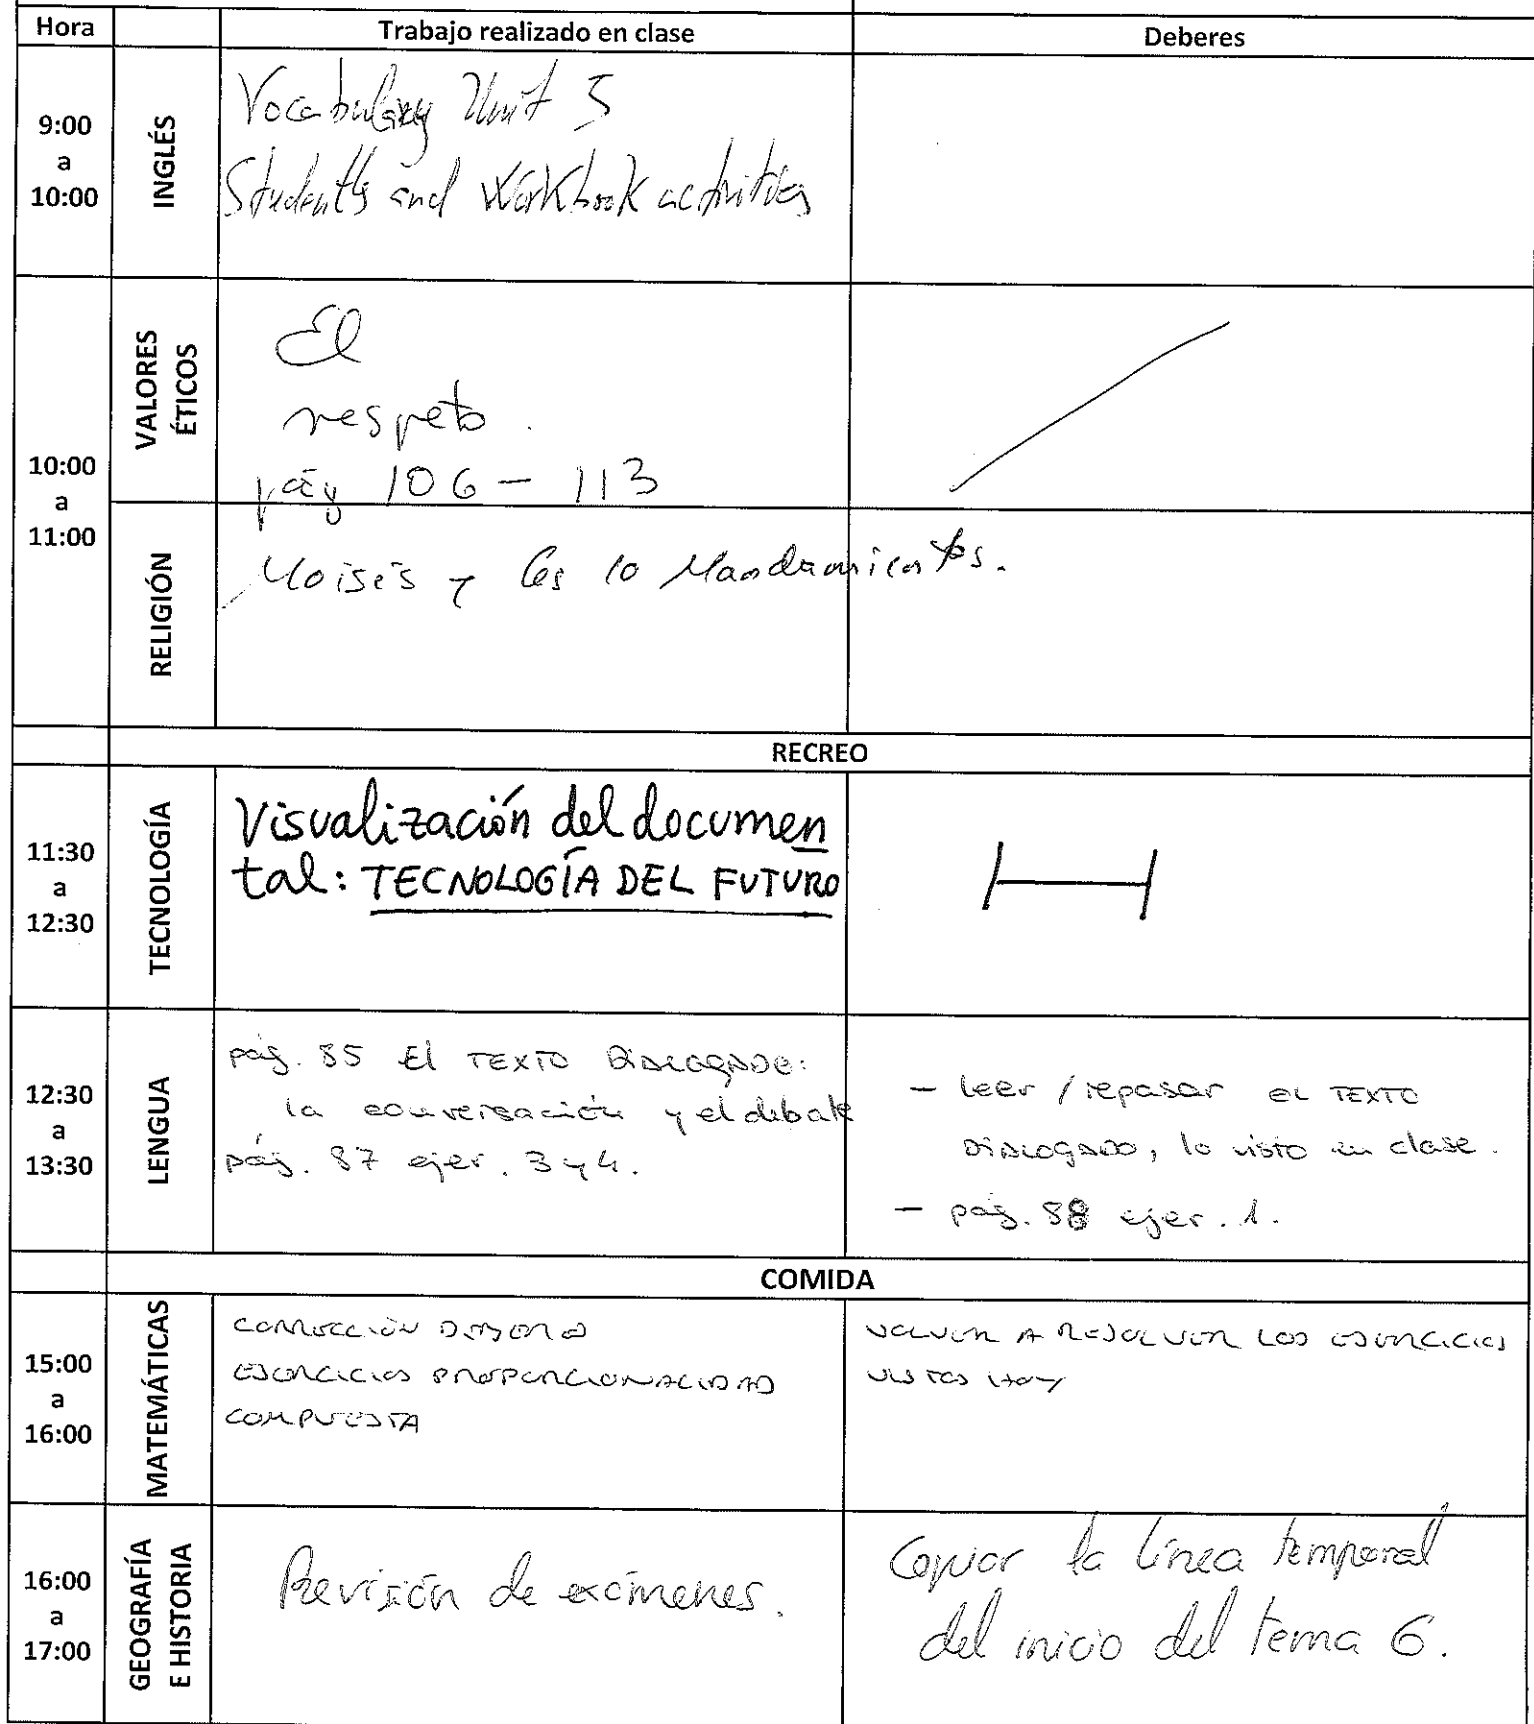 Hora Trabajo realizado en clase Deberes
9:00
a
10:00
INGLÉS
Vocabulary Unit 5
Student's and Workbook activities
10:00
a
11:00
VALORES
ÉTICOS
El
respeto.
pág 106 - 113
RELIGIÓN
Moisés y los 10 Mandamientos.
RECREO
11:30
a
12:30
TECNOLOGÍA
Visualización del documen
tal: TECNOLOGÍA DEL FUTURO
12:30
a
13:30
LENGUA
pág. 85 El TEXTO DIALOGADO:
la conversación y el debate
pág. 87 ejer. 3 y 4.
- leer / repasar EL TEXTO
DIALOGADO, lo visto en clase.
- pág. 88 ejer. 1.
COMIDA
15:00
a
16:00
MATEMÁTICAS
CORRECCIÓN DEBERES
EJERCICIOS PROPORCIONALIDAD
COMPUESTA
VOLVER A RESOLVER LOS EJERCICIOS
VISTOS HOY
16:00
a
17:00
GEOGRAFÍA
E HISTORIA
Revisión de exámenes.
Copiar la línea temporal
del inicio del tema 6.